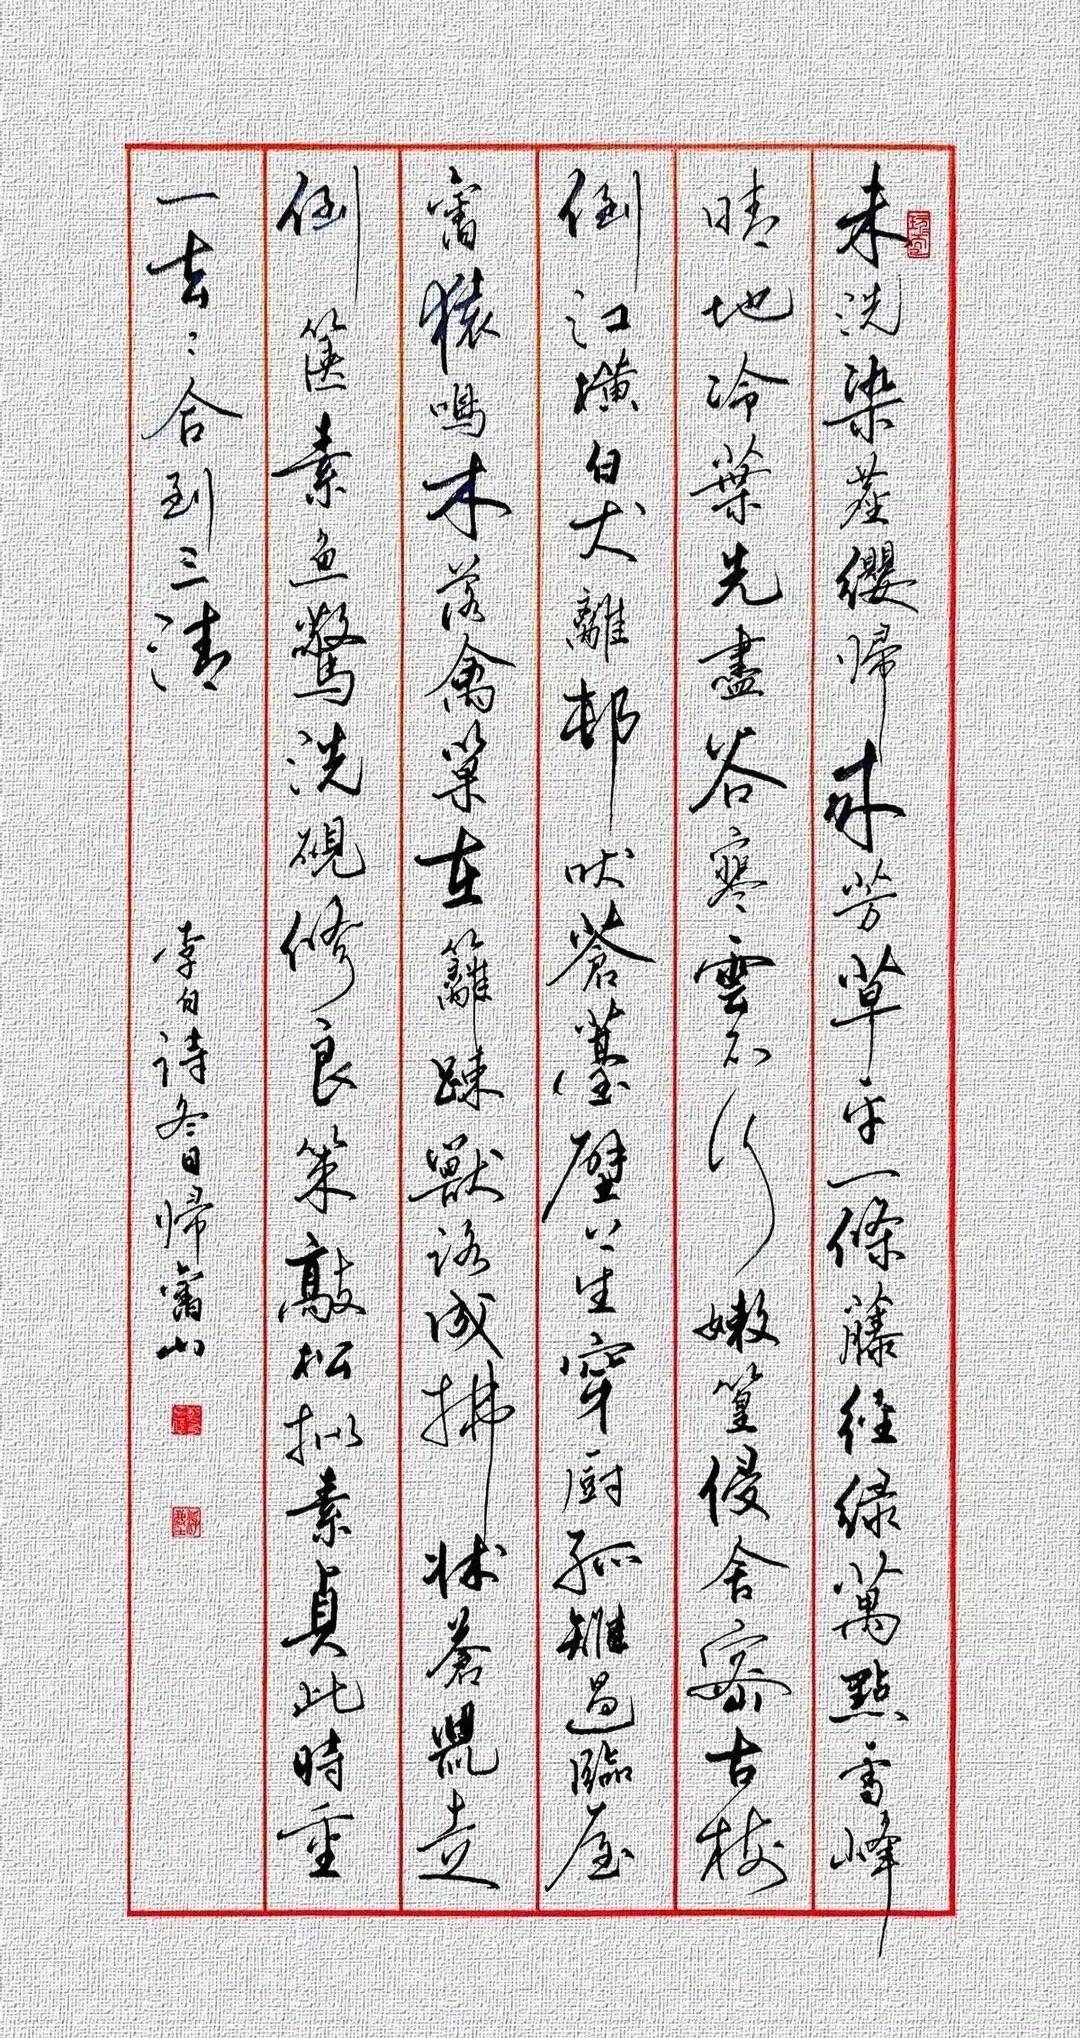 未洗染塵纓帰來芳草平一條藤徑緑萬點雪峰
晴地冷葉先盡谷寒雲不行嫩篁侵舍密古樹
倒江橫白犬離邨吠蒼薹壁上生穿厨孤雉過臨屋
舊猿鳴木落禽巢在籬踈獸路成拂牀蒼鼠走
倒篋素魚驚洗硯修良策敲松擬素貞此時重
一去〻合到三清
李白詩冬日歸舊山